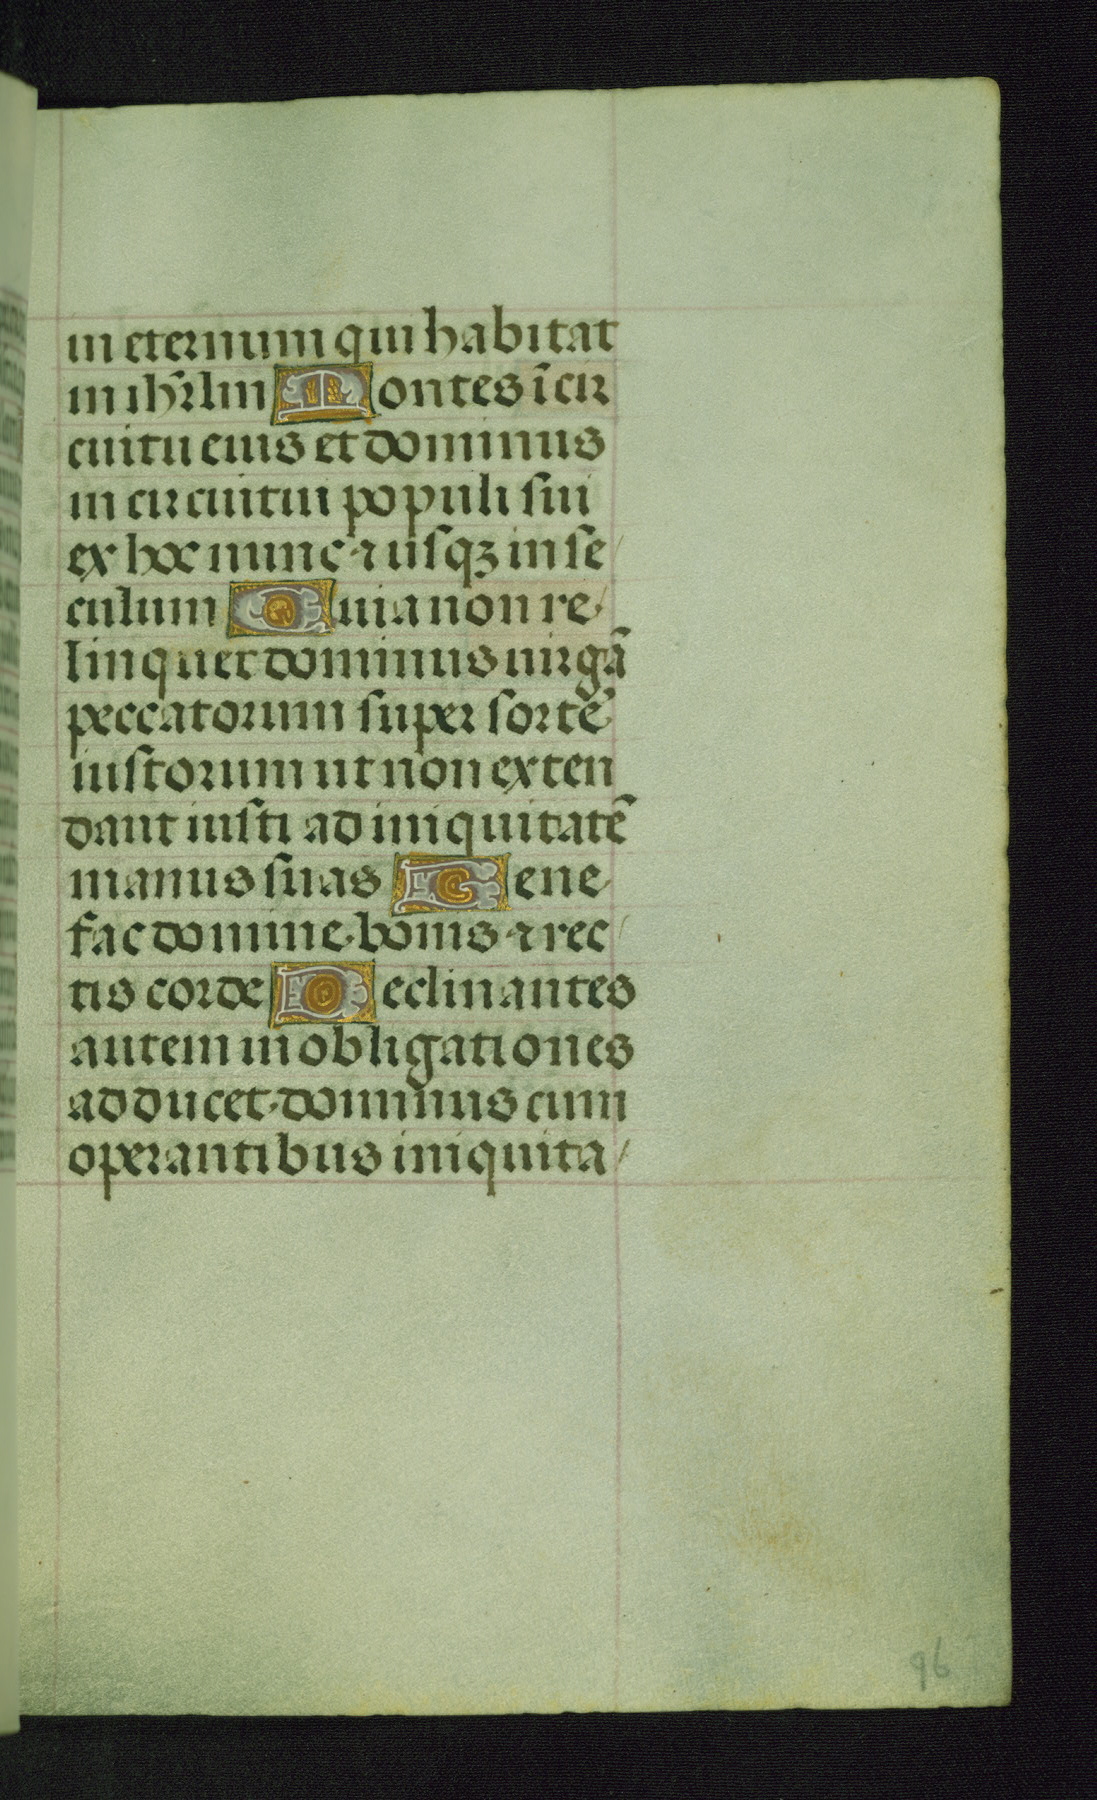 in eternum qui habitat
in ihr̃lm Montes ĩ cir
cuitu eius et dominus
in circuitui populi sui
ex hoc nunc ⁊ usqꝫ in se
culum Quia non re
linquet dominus uirgã
peccatorum super sortẽ
iustorum ut non exten
dant iusti ad iniquitatẽ
manus suas Bene
fac domine bonis ⁊ rec
tis corde Declinantes
autem in obligationes
adducet dominus cum
operantibus iniquita
96